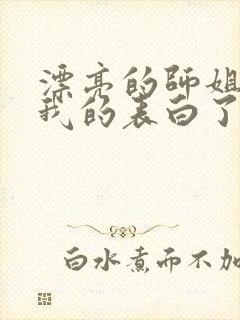 漂亮的师姐
我的表白了
白水煮而不加